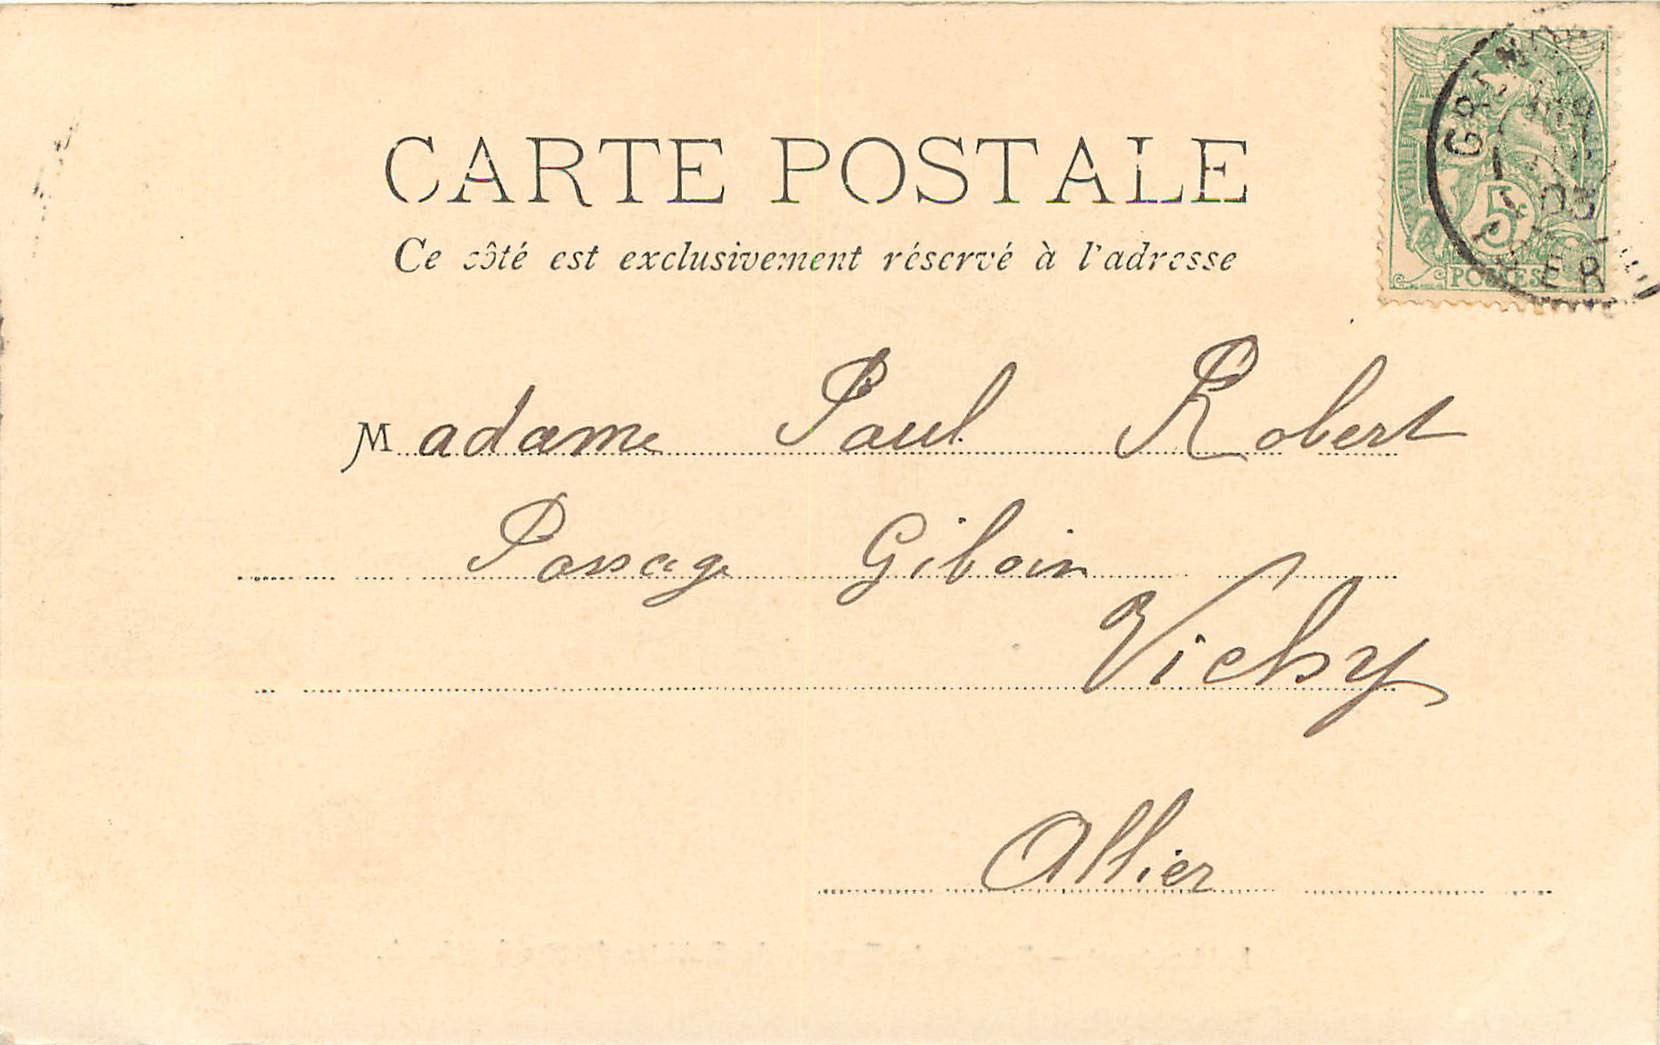 CARTE POSTALE
Ce côté est exclusivement réservé à l'adresse
Madame Paul Robert
Passage Giboin
Vichy
Allier
5c
POSTES